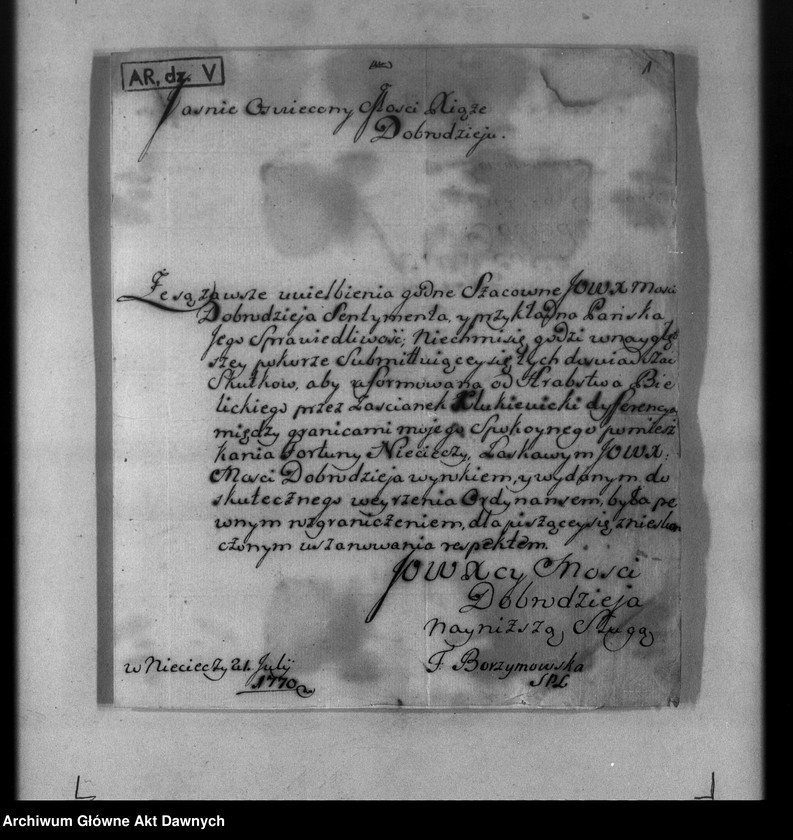 AR, dz. V
1
Jasnie Oswiecony Mosci Xiąże
Dobrodzieju.
Ze są zawsze uwielbienia godne Szacowne JOWX Mosci
Dobrodzieja Sentymenta, y przykładna Pańska
Jego Sprawiedliwość; Niechmisię godzi w naygłęb
szey pokorze Submittuiącey się tych doswiadczać
Skutkow, aby uformowana od Hrabstwa Bie
lickiego przez Zascianek Klukiewicki dyfferencya,
między granicami mojego Spokoynego pomiesz
kania Fortuny Niecieczy, Łaskawym JOWX:
Mosci Dobrodzieja wyrokiem, y wydanym do
skutecznego weyrzenia Ordynansem, była pe
wnym rozgraniczeniem, dla piszącey się z niesko
czonym uszanowania respektem.
JOWXcy Mosci
Dobrodzieja
Nayniższą Sługą
F. Borzymowska
SPL
w Niecieczy 21 Julij
1770
Archiwum Główne Akt Dawnych